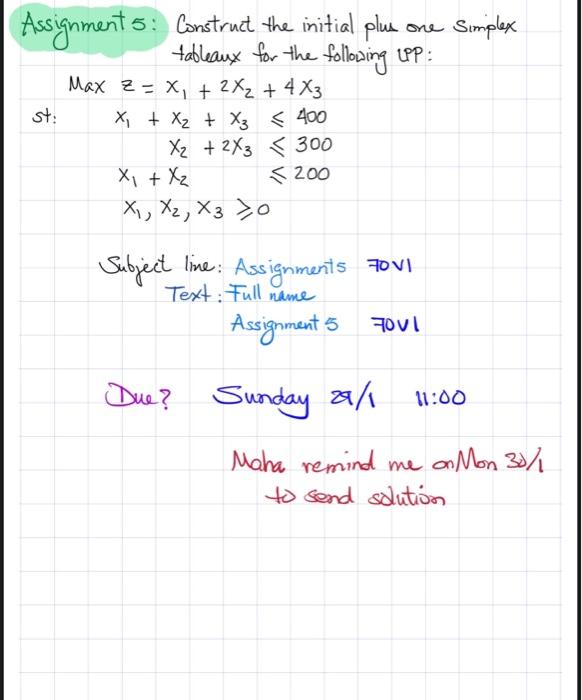 Assignment 5: Construct the initial plus one Simplex
tableaux for the following LPP:
Max Z = X₁ + 2X₂ + 4X₃
st: X₁ + X₂ + X₃ ≤ 400
X₂ + 2X₃ ≤ 300
X₁ + X₂ ≤ 200
X₁, X₂, X₃ ≥ 0
Subject line: Assignment 5 70V1
Text: Full name
Assignment 5 70V1
Due? Sunday 29/1 11:00
Maha remind me on Mon 30/1
to send solution